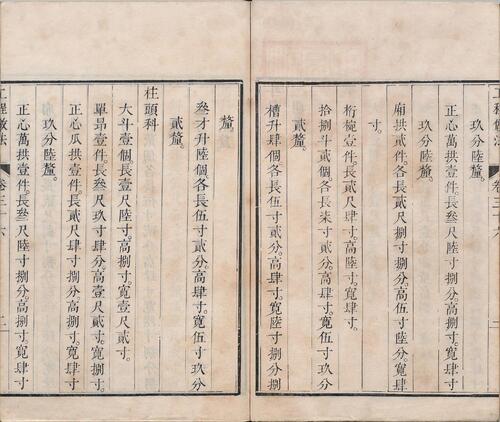 玖分陸釐。
正心萬拱壹件。長叄尺陸寸捌分。高捌寸。寬肆寸
玖分陸釐。
廂拱貳件。各長貳尺肆寸捌分。高伍寸陸分。寬肆
寸。
桁椀壹件。長貳尺肆寸。高陸寸。寬肆寸。
拾捌斗貳個。各長柒寸貳分。高肆寸。寬伍寸玖分
貳釐。
槽升肆個。各長伍寸貳分。高肆寸。寬陸寸捌分捌
釐。
叄才升陸個。各長伍寸貳分。高肆寸。寬伍寸玖分
貳釐。
柱頭科
大斗壹個。長壹尺陸寸。高捌寸。寬壹尺貳寸。
單昂壹件。長叄尺玖寸肆分。高壹尺貳寸。寬捌寸。
正心瓜拱壹件。長貳尺肆寸捌分。高捌寸。寬肆寸
玖分陸釐。
正心萬拱壹件。長叄尺陸寸捌分。高捌寸。寬肆寸
工程做法 卷三十六 二